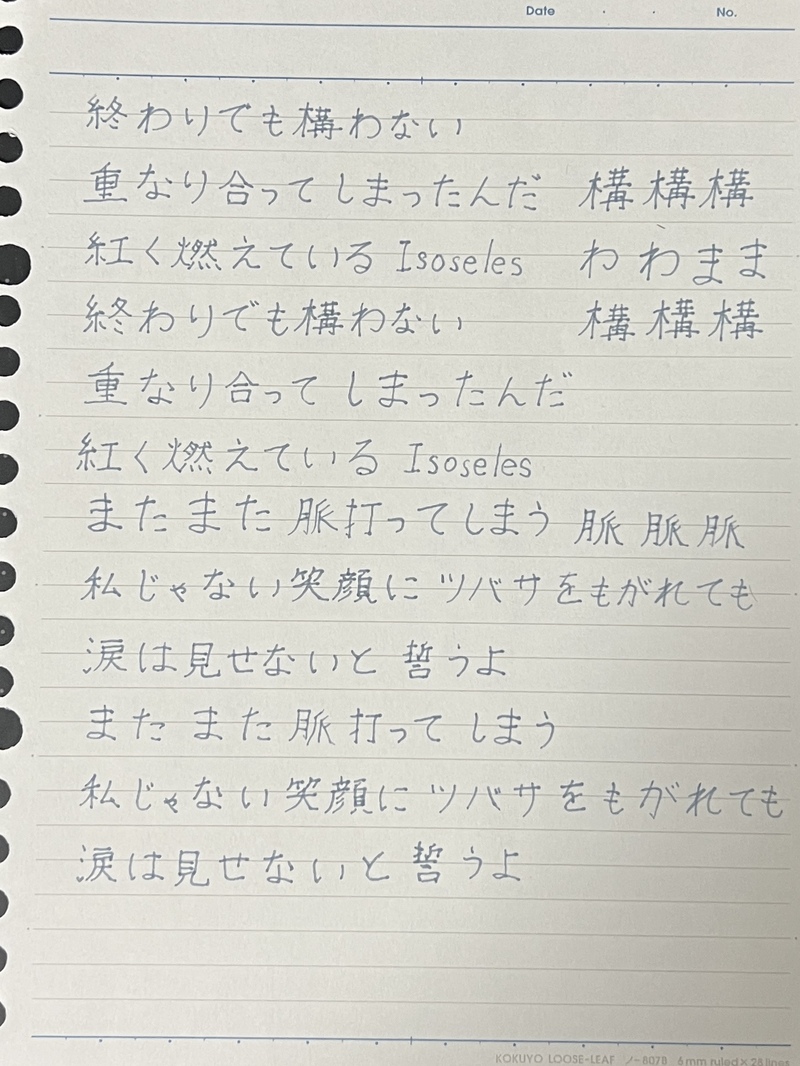 Date ・ ・ No.
終わりでも構わない
重なり合ってしまったんだ 構構構
紅く燃えている Isoseles わわまま
終わりでも構わない 構構構
重なり合ってしまったんだ
紅く燃えている Isoseles
またまた脈打ってしまう 脈脈脈
私じゃない笑顔にツバサをもがれても
涙は見せないと誓うよ
またまた脈打ってしまう
私じゃない笑顔にツバサをもがれても
涙は見せないと誓うよ
KOKUYO LOOSE-LEAF ノ-807B 6mm ruled×28lines